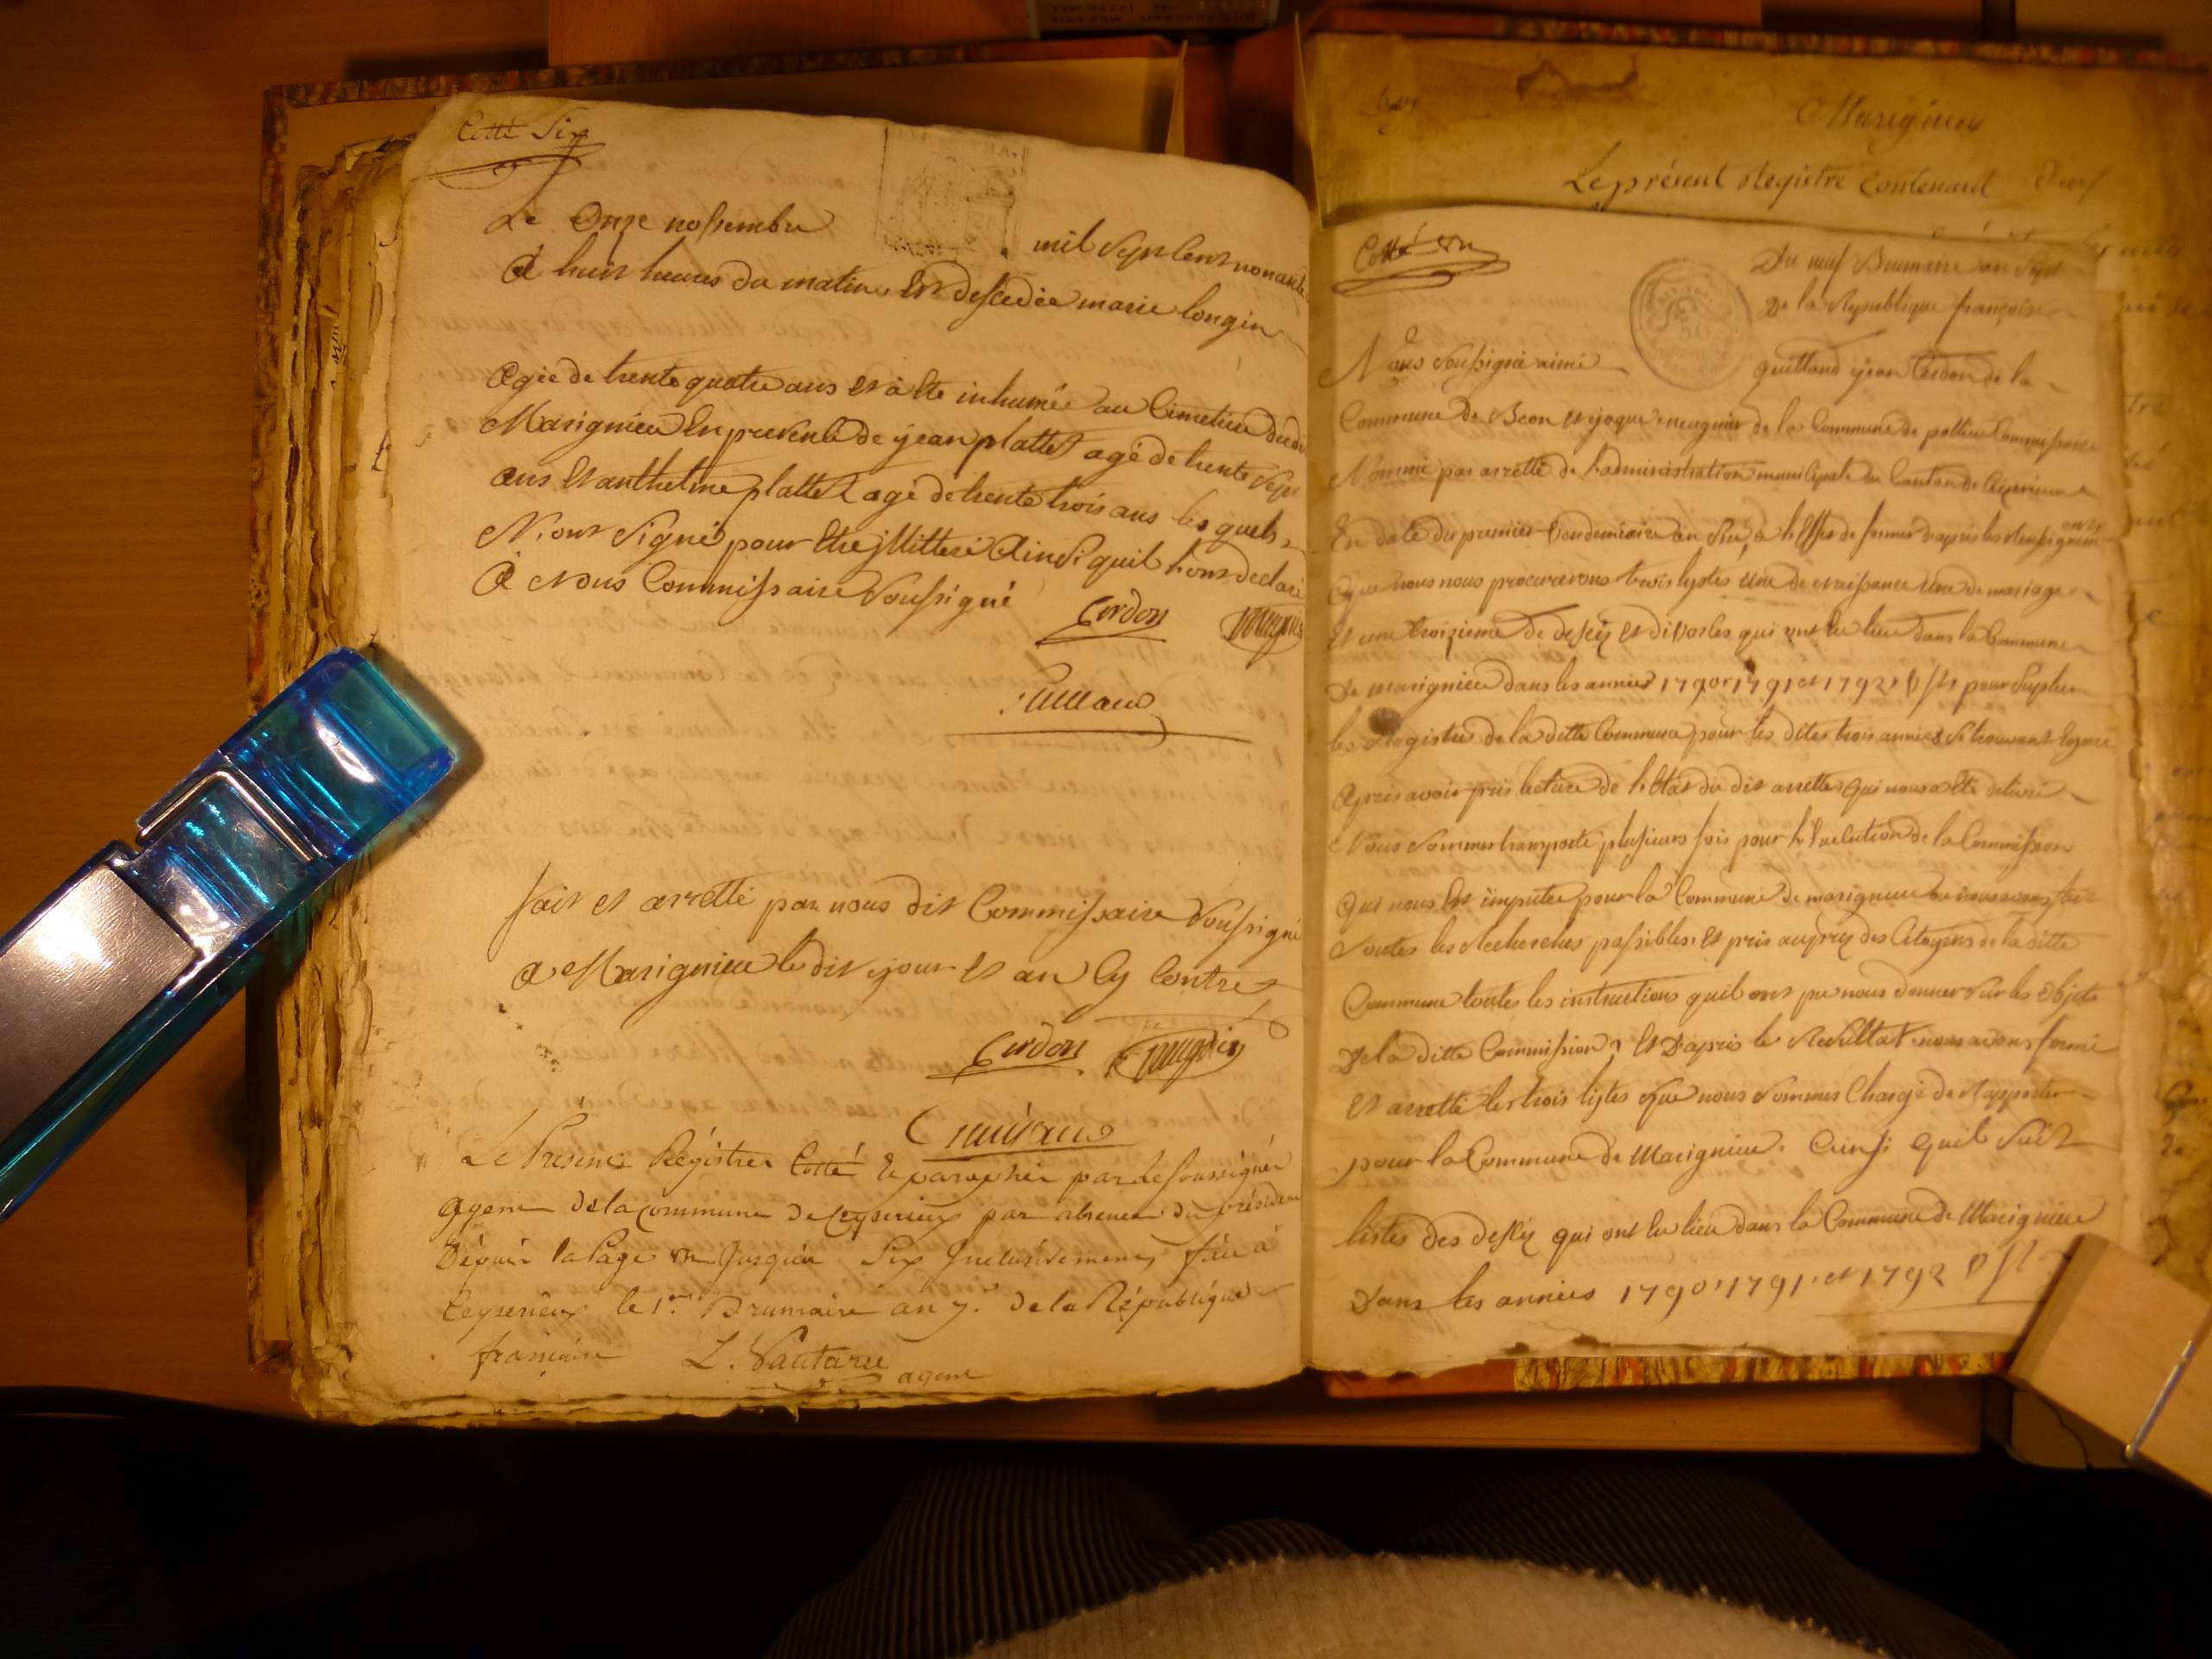 Cotté Six
Le Onze novembre mil Sept Cent nonante
à huit heures du matin Est descedée marie longin
agée de trente quatre ans et à Eté inhumée au Cimetiere dudit
Marignieu En presence de jean plattet agé de trente Sept
ans Et anthelme plattet agé de trente trois ans les quels
N'ont Signé pour Etre jllitteré Ainsi quil l'ont declaré
à Nous Commissaire Soussigné
Cerdon
fait et arretté par nous dit Commissaire Soussigné
à Marignieu le dit jour Et an Cy Contre
Cerdon
Le Present Régistre Cotté et paraphé par le soussigné
agent de la commune de Ceyserieu par absence du président
Depuis la Page un Jusqu'a Six Inclusivement fait à
Ceyserieu le 1er Brumaire an 7e de la République
francaise L. Vautaret
agent
Marignieu
Le présent Registre Contenant
Cotté un
Du neuf Brumaire an Sept
De la Republique françoise
Nous Soussigné aimé guilland jean Cerdon de la
Commune de Beon et jaque meugnier de la Commune de pollieu Commissaire
Nommé par arretté de l'administration municipale du Canton de Ceyserieu
En date du premier Vendemiaire an Sept, à l'Effet de former d'après les renseignements
Que nous nous procurerons trois lystes Une de Naissance Une de mariage
Et une troizieme de desés Et divorces qui ont Eu lieu dans la Commune
De marignieu dans les années 1790, 1791 et 1792 V.S. pour Supleer
les Registre de la ditte Commune pour les dites trois années Se trouvant Egaré
Apres avoir pris lecture de l'Etat du dit arretté qui nous a Eté delivré
Nous Sommes transporté plusieurs fois pour l'Execution de la Commission
Qui nous Est imputée pour la Commune de marignieu ou nous avons fait
Toutes les Recherches possibles, Et pris auprez des Citoyens de la ditte
Commune toutes les instructions quil ont pu nous donner Sur les Objets
De la ditte Commission, Et D'apres le Resultat nous avons formé
Et arretté les trois listes que nous Sommes Chargé de Rapporter
pour la Commune de Marignieu. Ainsi quil Suit
listes des desés qui ont Eu lieu dans la Commune de Marignieu
Dans les années 1790, 1791, et 1792 V.S.